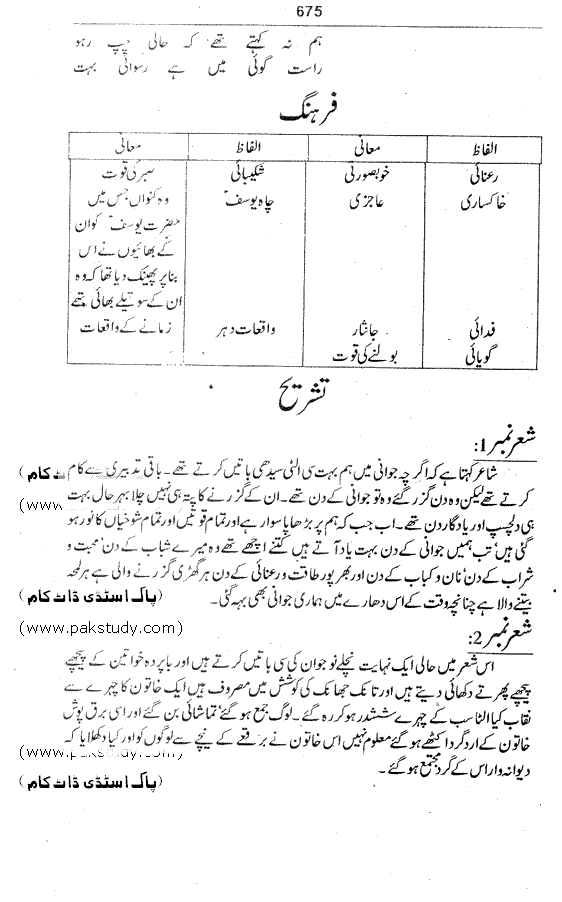 675
ہم نہ کہتے تھے کہ حالی چپ رہو
راست گوئی میں ہے رسوائی بہت
فرہنگ
الفاظ معانی الفاظ معانی
رعنائی خوبصورتی شکیبائی صبر کی قوت
خاکساری عاجزی چاہ یوسفؑ وہ کنواں جس میں
حضرت یوسفؑ کو ان
کے بھائیوں نے اس
بنا پر پھینک دیا تھا کہ وہ
ان کے سوتیلے بھائی تھے
فدائی جانثار واقعات دہر زمانے کے واقعات
گویائی بولنے کی قوت
تشریح
شعر نمبر 1:
شاعر کہتا ہے کہ اگرچہ جوانی میں ہم بہت سی الٹی سیدھی باتیں کرتے تھے۔ باقی تدبیری سے کام (ٹ کام
کرتے تھے لیکن وہ دن گزر گئے وہ تو جوانی کے دن تھے۔ ان کے گزرنے کا پتہ ہی نہیں چلا بہر حال بہت (www.
ہی دلچسپ اور یادگار دن تھے۔ اب جب کہ ہم پر بڑھاپا سوار ہے اور تمام قوتیں اور تمام شوخیاں کافور ہو
گئی ہیں' تب ہمیں جوانی کے دن بہت یاد آتے ہیں کتنے اچھے تھے وہ میرے شباب کے دن' محبت و
شراب کے دن' نان و کباب کے دن اور بھرپور طاقت و رعنائی کے دن ہر گھڑی گزرنے والی ہے ہر لمحہ
بیتنے والا ہے چنانچہ وقت کے اس دھارے میں ہماری جوانی بھی بہہ گئی۔ (پاک اسٹڈی ڈاٹ کام)
(www.pakstudy.com)
شعر نمبر 2:
اس شعر میں حالی ایک نہایت نچلے نوجوان کی سی باتیں کرتے ہیں اور باپردہ خواتین کے پیچھے
پیچھے پھرتے دکھائی دیتے ہیں اور تانک جھانک کی کوشش میں مصروف ہیں ایک خاتون کا چہرے سے
نقاب کیا الٹا سب کے چہرے ششدر ہو کر رہ گئے۔ لوگ جمع ہو گئے' تماشائی بن گئے اور اسی برق پوش
خاتون کے ارد گرد اکٹھے ہو گئے معلوم نہیں اس خاتون نے برقعے کے نیچے سے لوگوں کو اور کیا دکھلایا کہ
(www.pakstudy.com)
دیوانہ وار اس کے گرد مجتمع ہو گئے۔ (پاک اسٹڈی ڈاٹ کام)